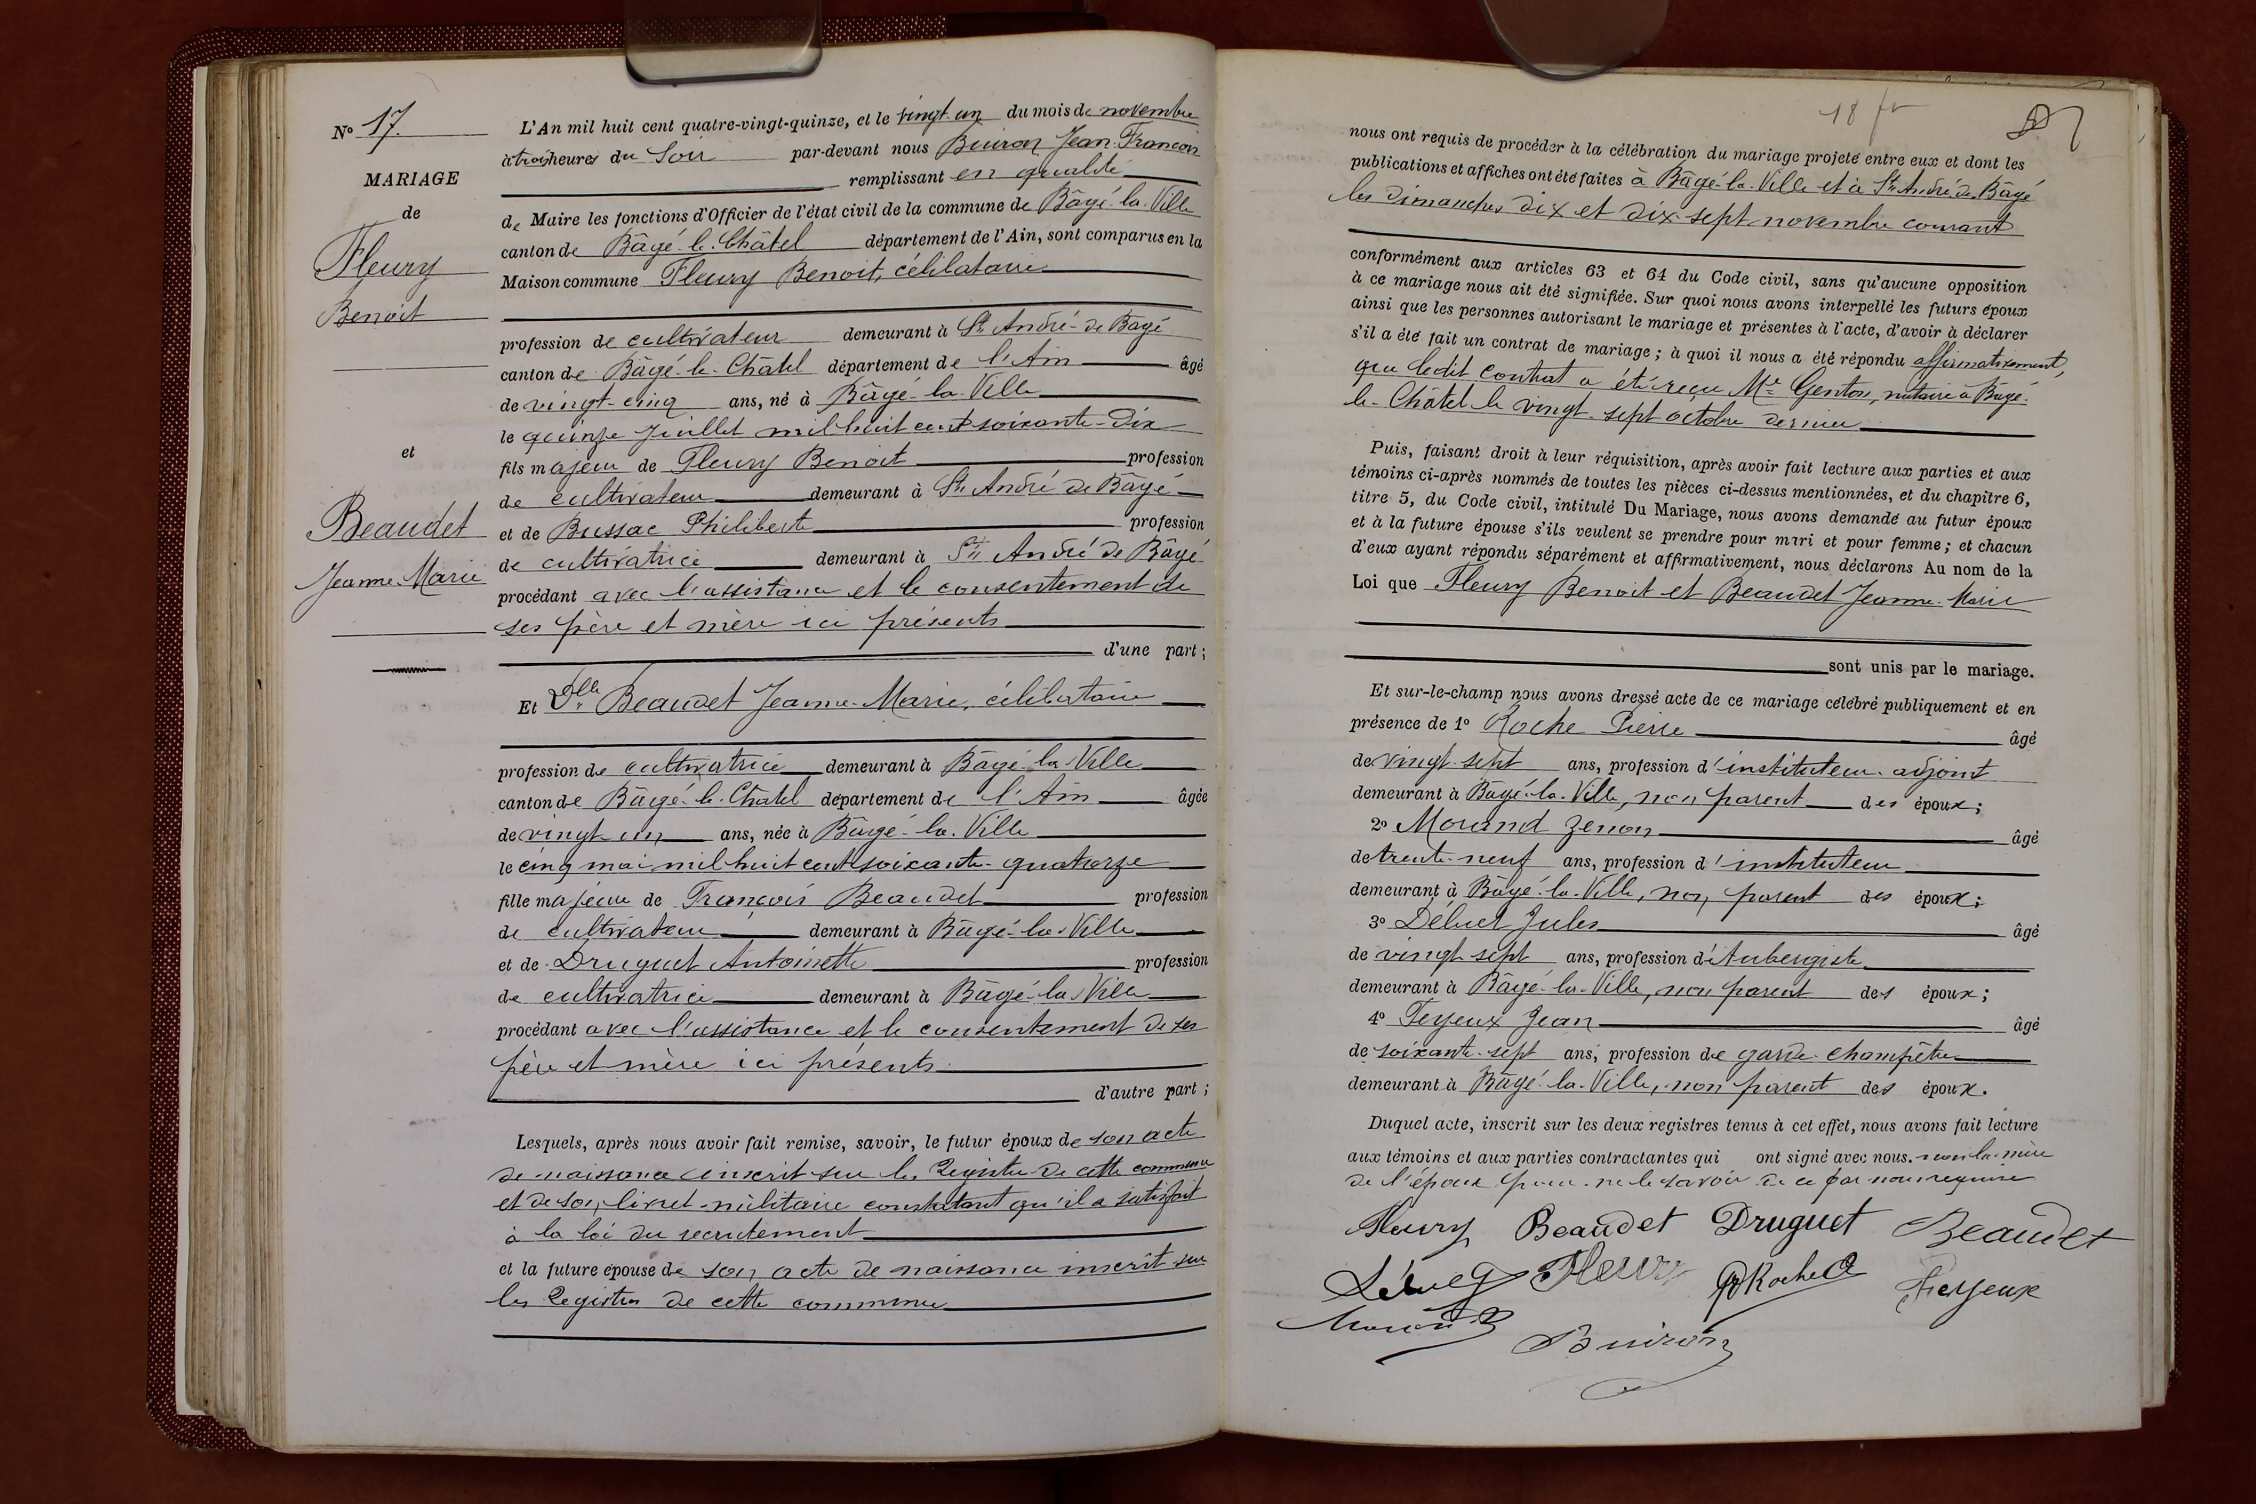 N° 17.
MARIAGE
de
Fleury
Benoit
et
Beaudet
Jeanne-Marie
L'An mil huit cent quatre-vingt-quinze, et le vingt-un du mois de novembre
à trois heures du soir par-devant nous Buiron Jean-François
remplissant en qualité
de Maire les fonctions d'Officier de l'état civil de la commune de Bâgé-la-Ville
canton de Bâgé-le-Châtel département de l'Ain, sont comparus en la
Maison commune Fleury Benoit, célibataire
profession de cultivateur demeurant à St André-de-Bagé
canton de Bâgé-le-Châtel département de l'Ain âgé
de vingt-cinq ans, né à Bâgé-la-Ville
le quinze juillet mil huit cent soixante-dix
fils majeur de Fleury Benoit profession
de cultivateur demeurant à St André de Bâgé
et de Bussac Philiberte profession
de cultivatrice demeurant à St André de Bâgé
procédant avec l'assistance et le consentement de
ses père et mère ici présents
d'une part ;
Et Dlle Beaudet Jeanne-Marie, célibataire
profession de cultivatrice demeurant à Bâgé-la-Ville
canton de Bâgé-le-Châtel département de l'Ain âgée
de vingt-un ans, née à Bâgé-la-Ville
le cinq mai mil huit cent soixante-quatorze
fille majeure de François Beaudet profession
de cultivateur demeurant à Bâgé-la-Ville
et de Druguet Antoinette profession
de cultivatrice demeurant à Bâgé-la-Ville
procédant avec l'assistance et le consentement de ses
père et mère ici présents
d'autre part ;
Lesquels, après nous avoir fait remise, savoir, le futur époux de son acte
de naissance inscrit sur les Registres de cette commune
et de son livret militaire constatant qu'il a satisfait
à la loi du recrutement
et la future épouse de son acte de naissance inscrit sur
les Registres de cette commune
18 fr
nous ont requis de procéder à la célébration du mariage projeté entre eux et dont les
publications et affiches ont été faites à Bâgé-la-Ville et à St André de Bâgé
les dimanches dix et dix-sept novembre courant
conformément aux articles 63 et 64 du Code civil, sans qu'aucune opposition
à ce mariage nous ait été signifiée. Sur quoi nous avons interpellé les futurs époux
ainsi que les personnes autorisant le mariage et présentes à l'acte, d'avoir à déclarer
s'il a été fait un contrat de mariage ; à quoi il nous a été répondu affirmativement,
que ledit contrat a été reçu Me Genton, notaire à Bâgé-
le-Châtel le vingt-sept octobre dernier
Puis, faisant droit à leur réquisition, après avoir fait lecture aux parties et aux
témoins ci-après nommés de toutes les pièces ci-dessus mentionnées, et du chapitre 6,
titre 5, du Code civil, intitulé Du Mariage, nous avons demandé au futur époux
et à la future épouse s'ils veulent se prendre pour mari et pour femme ; et chacun
d'eux ayant répondu séparément et affirmativement, nous déclarons Au nom de la
Loi que Fleury Benoit et Beaudet Jeanne-Marie
sont unis par le mariage.
Et sur-le-champ nous avons dressé acte de ce mariage célébré publiquement et en
présence de 1° Roche Pierre âgé
de vingt-sept ans, profession d'instituteur-adjoint
demeurant à Bâgé-la-Ville, non parent des époux ;
2° Morand Zénon âgé
de trente-neuf ans, profession d'instituteur
demeurant à Bâgé-la-Ville, non parent des époux ;
3° Déluet Jules âgé
de vingt-sept ans, profession d'Aubergiste
demeurant à Bâgé-la-Ville, non parent des époux ;
4° Feyeux Jean âgé
de soixante-sept ans, profession de garde-champêtre
demeurant à Bâgé-la-Ville, non parent des époux.
Duquel acte, inscrit sur les deux registres tenus à cet effet, nous avons fait lecture
aux témoins et aux parties contractantes qui ont signé avec nous. non la mère
de l'époux pour ne le savoir de ce par nous requise
Fleury Beaudet Druguet Beaudet
Fleury Roche Feyeux
Morand
Buiron